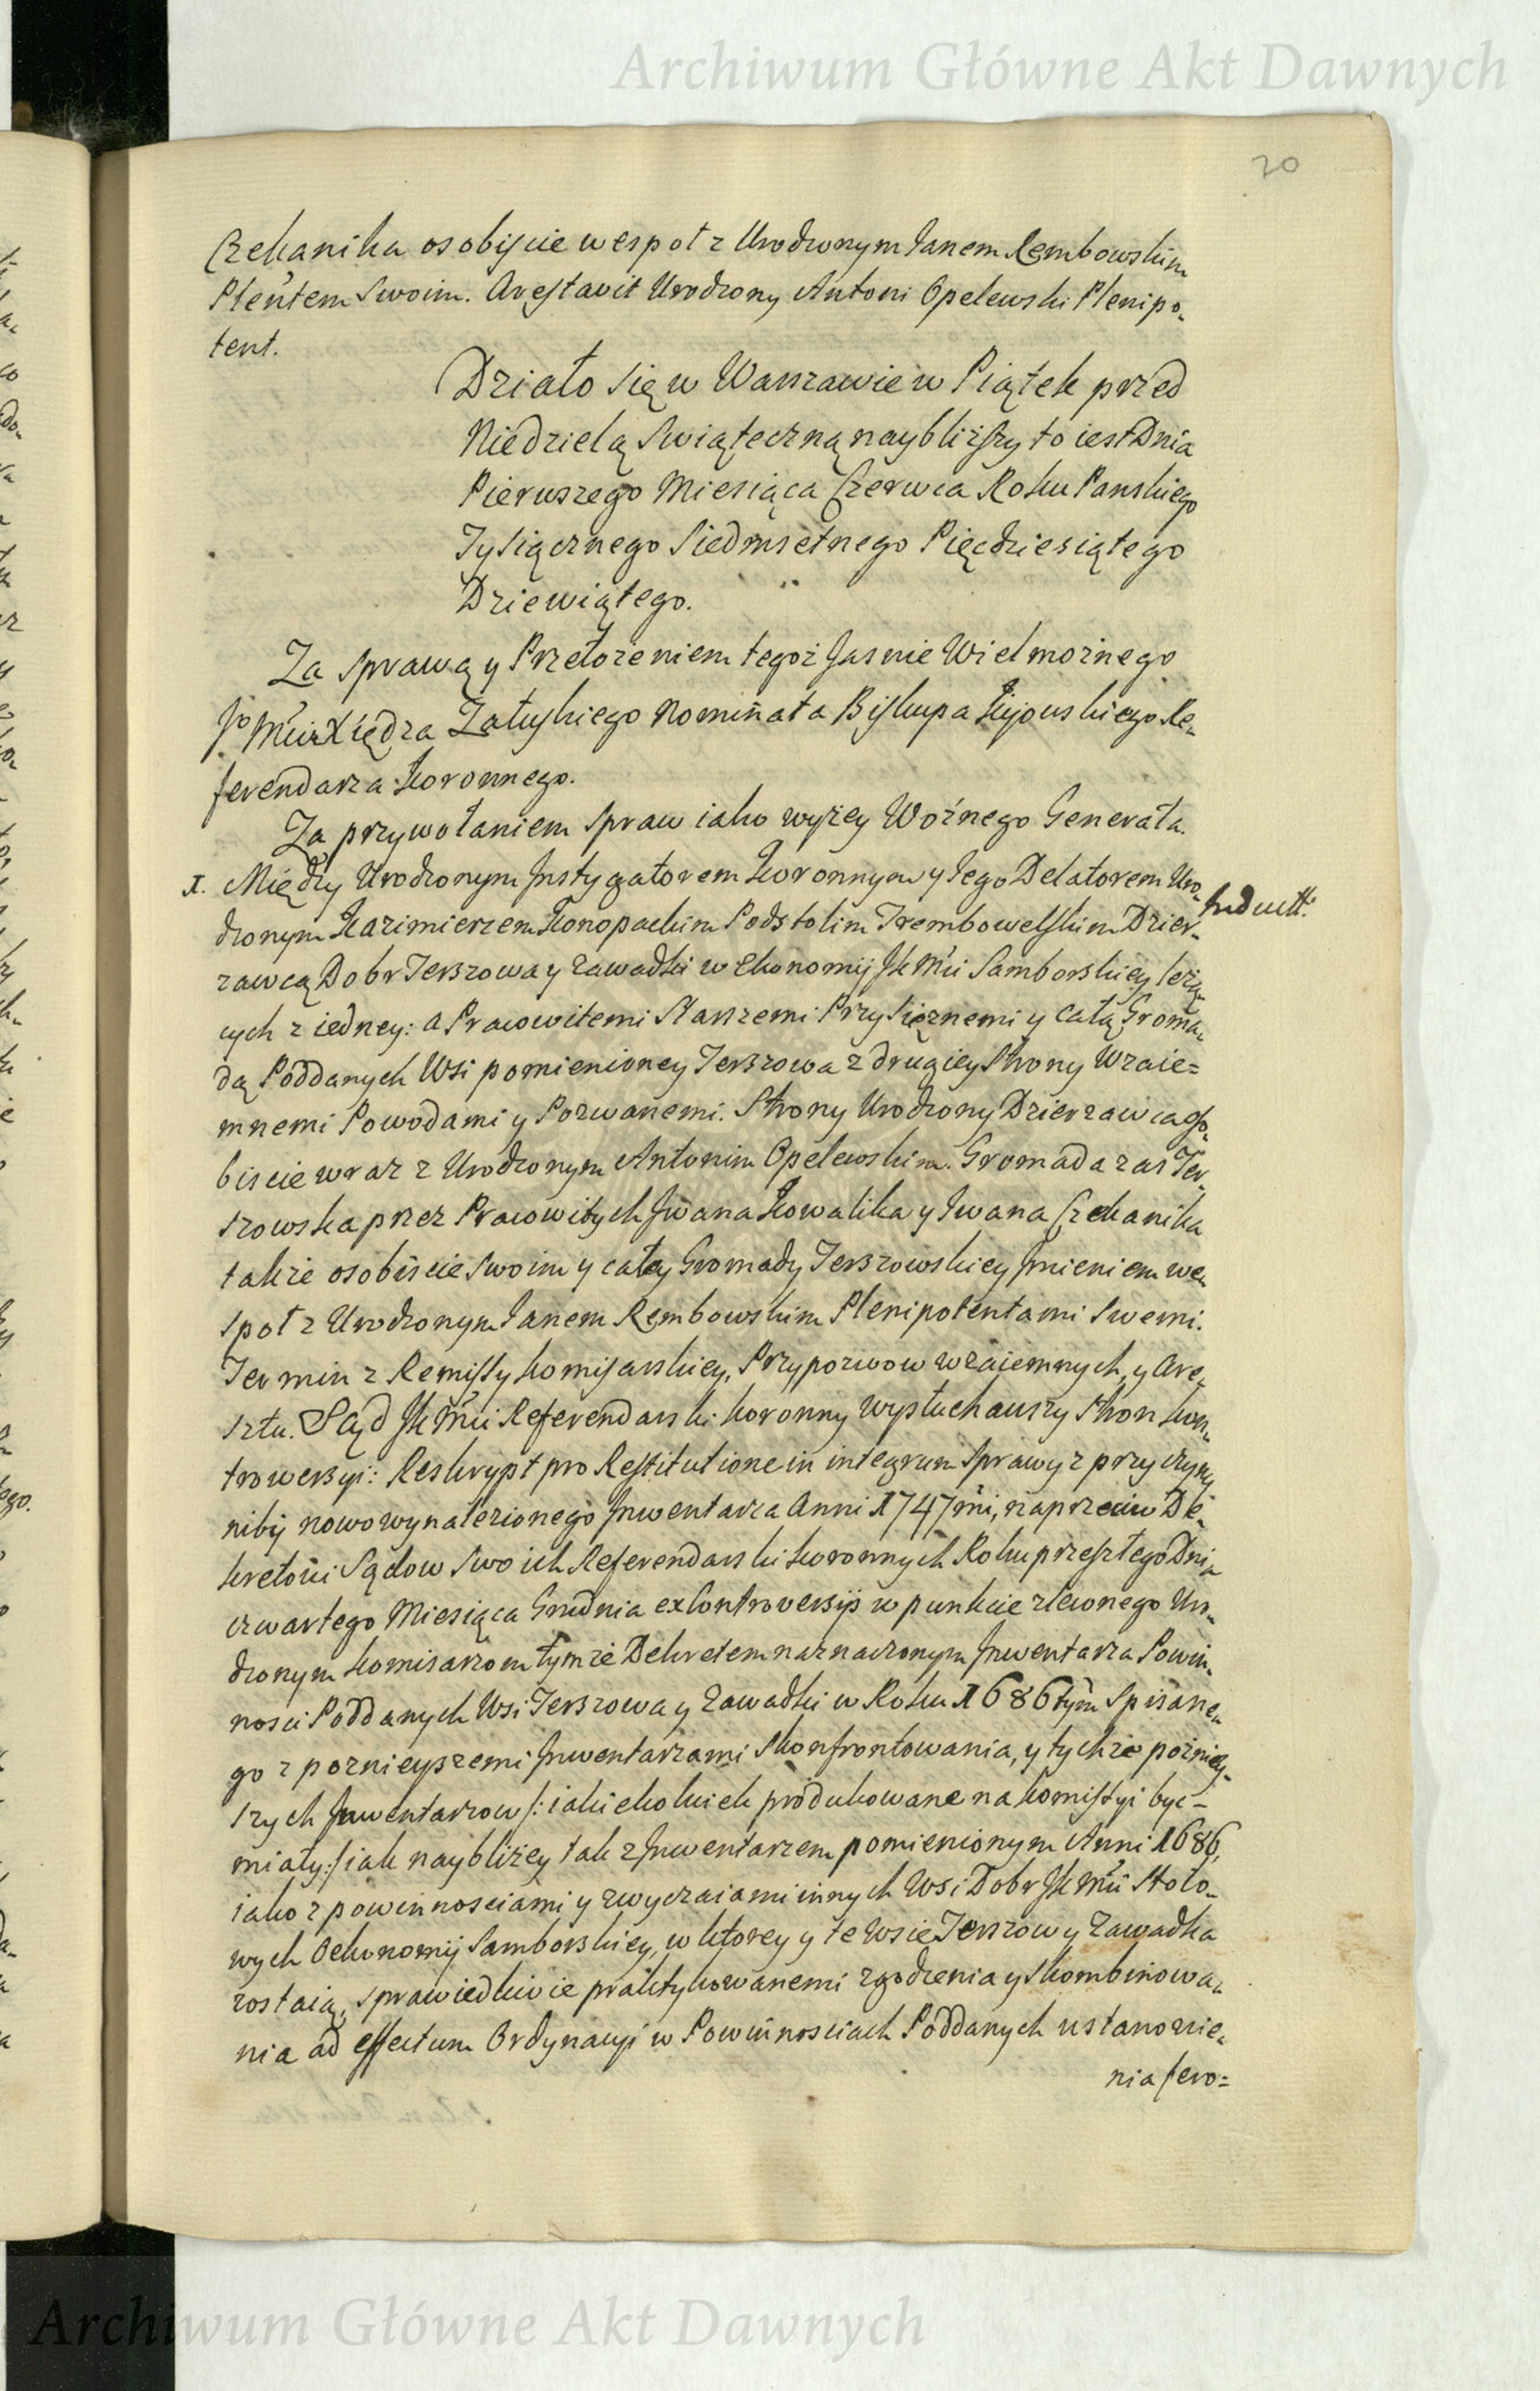 Archiwum Główne Akt Dawnych
20
Czekanika osobiście wespoł z Urodzonym Janem Rembowskim
Pleñtem Swoim. Arestavit Urodzony Antoni Opelewski Plenipo-
tent.
Działo się w Warszawie w Piątek przed
Niedzielą Swiąteczną naybliższy to iest Dnia
Pierwszego Miesiąca Czerwca Roku Panskiego
Tysiącznego Siedmsetnego Pięcdziesiątego
Dziewiątego.
Za Sprawą y Przełożeniem tegoż Jasnie Wielmożnego
Jo Mći Xiędza Załuskiego Nominata Biskupa Kijowskiego Re-
ferendarza Koronnego.
Za przywołaniem Spraw iako wyżey Woźnego Generała.
1. Między Urodzonym Instygatorem Koronnym y Jego Delatorem Uro-
Indukt:
dzonym Kazimierzem Konopackim Podstolim Trembowelskim Dzier-
zawcą Dobr Terszowa y Zawadki w Ekonomij JK Mći Samborskiey leżą-
cych z iedney: a Pracowitemi Starszemi Przysiężnemi y całą Groma-
dą Poddanych Wsi pomienioney Terszowa z drugiey Strony Wzaie=
mnemi Powodami y Pozwanemi. Strony Urodzony Dzierzawca Oso-
biscie wraz z Urodzonym Antonim Opelewskim. Gromada zas Ter-
szowska przez Pracowitych Jwana Kowalika y Iwana Czekanika
także osobiście Swoim y całey Gromady Terszowskiey Imieniem we-
społ z Urodzonym Janem Rembowskim Plenipotentami Swemi.
Termin z Remissy Komisarskiey, Przypozwow wzaiemnych, y Are-
sztu. Sąd JK Mći Referendarski Koronny wysłuchawszy Stron Kon-
trowersyi: Reskrypt pro Restitutione in integrum Sprawy z przyczyny
niby nowo wynalezionego Inwentarza Anni 1747mi, naprzeciw De-
kretowi Sądow Swoich Referendarskich Koronnych Roku przeszłego Dnia
czwartego Miesiąca Grudnia ex Controversijs w punkcie zleconego Uro-
dzonym Komisarzom tymże Dekretem naznaczonym Inwentarza Powin-
nosci Poddanych Wsi Terszowa y Zawadki w Roku 1686tym Spisane-
go z poznieyszemi Inwentarzami Skonfrontowania, y tychże poźniey-
szych Inwentarzow /: iakiekolwiek produkowane na Komissyi być -
miały:/ iak naybliżey tak z Inwentarzem pomienionym Anni 1686,
iako z powinnosciami y zwyczaiami innych Wsi Dobr JK Mći Stoło-
wych Oekonomij Samborskiey, w ktorey y te Wsie Terszow y Zawadka
zostaią, sprawiedliwie praktykowanemi zgodzenia y Skombinowa-
nia ad effectum Ordynacyi w Powinnosciach Poddanych ustanowie-
nia fero=
Archiwum Główne Akt Dawnych